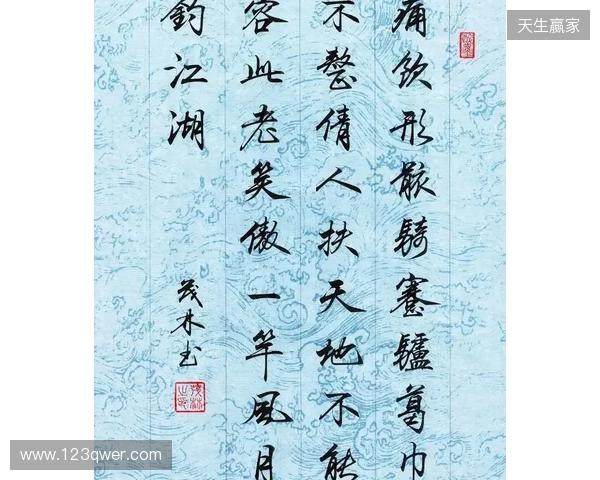 痛饮形骸骑蹇驴葛巾
不整倩人扶天地不能
容此老笑傲一竿风月
钓江湖
茂林书
天生赢家
www.123qwer.com